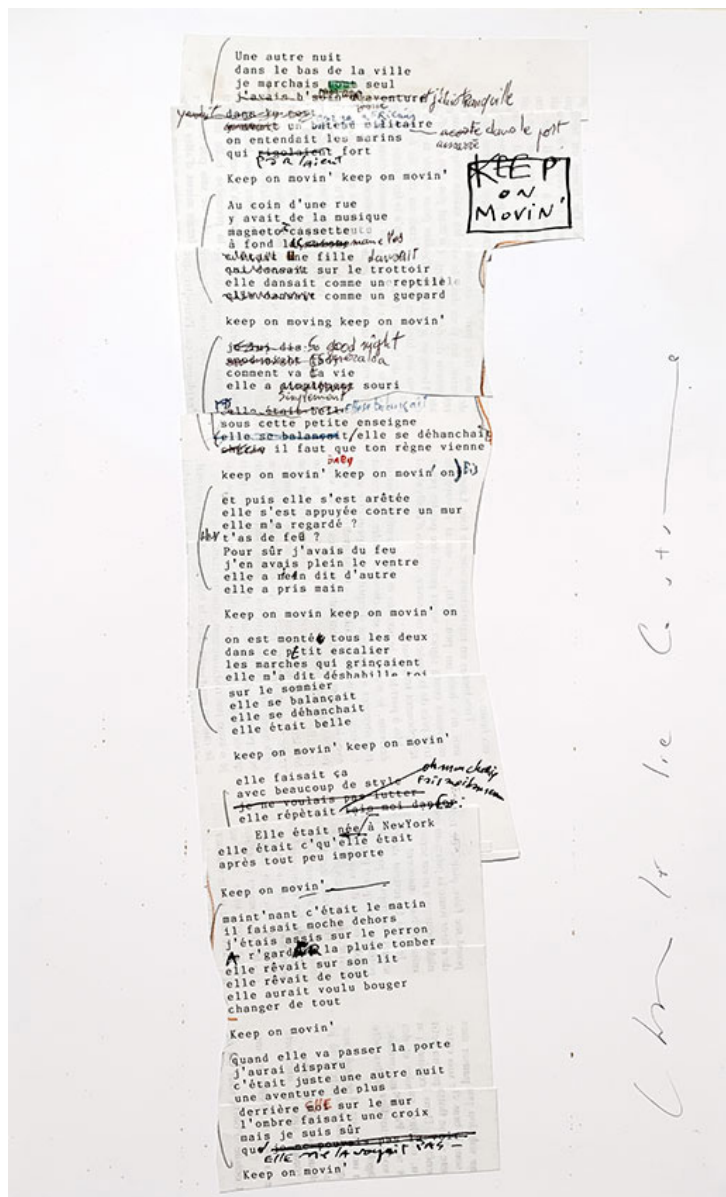 Une autre nuit
dans le bas de la ville
je marchais seul
j'avais b'soin d'aventure et j'étais tranquille
y avait dans le port
un bateau militaire accosté dans le port
on entendait les marins
qui rigolaient fort
parlaient
Keep on movin' keep on movin'
KEEP
ON
MOVIN'
Au coin d'une rue
y avait de la musique
magneto cassette
à fond les
une fille dansait
qui dansait sur le trottoir
elle dansait comme un reptile
elle dansait comme un guepard
keep on moving keep on movin'
je lui dis good night
Esmeralda
comment va la vie
elle a souri
simplement
elle était belle elle se balançait
sous cette petite enseigne
elle se balançait/elle se déhanchait
il faut que ton règne vienne
baby
keep on movin' keep on movin' on) Bis
et puis elle s'est arêtée
elle s'est appuyée contre un mur
elle m'a regardé ?
t'as de feu ?
Pour sûr j'avais du feu
j'en avais plein le ventre
elle a rien dit d'autre
elle a pris main
Keep on movin keep on movin' on
on est monté tous les deux
dans ce petit escalier
les marches qui grinçaient
elle m'a dit déshabille toi
sur le sommier
elle se balançait
elle se déhanchait
elle était belle
keep on movin' keep on movin'
elle faisait ça
avec beaucoup de style
je ne voulais pas lutter
elle répètait fais moi
Elle était née à NewYork
elle était c'qu'elle était
après tout peu importe
Keep on movin'
maint'nant c'était le matin
il faisait moche dehors
j'étais assis sur le perron
A r'garder la pluie tomber
elle rêvait sur son lit
elle rêvait de tout
elle aurait voulu bouger
changer de tout
Keep on movin'
quand elle va passer la porte
j'aurai disparu
c'était juste une autre nuit
une aventure de plus
derrière moi ELLE sur le mur
l'ombre faisait une croix
mais je suis sûr
que je ne pouvais pas la voir
ELLE NE LA voyait PAS —
Keep on movin'